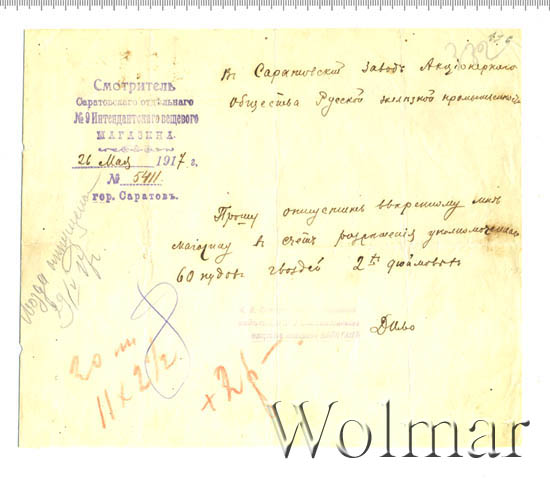 Смотритель
Саратовского отдѣльнаго
№ 9 Интендантского вещевого
МАГАЗИНА
26 Мая 1917 г.
№ 5411
гор. Саратовъ.
Въ Саратовскій заводъ Акціонернаго
Общества Русской желѣзной промышленности
Прошу отпустить ввѣренному мнѣ
магазину въ счетъ разрѣшенія уполномоченнаго
60 пудовъ гвоздей 2½ дюймовыхъ
20 пп
11 х 2½
+ 2 р -
Wolmar